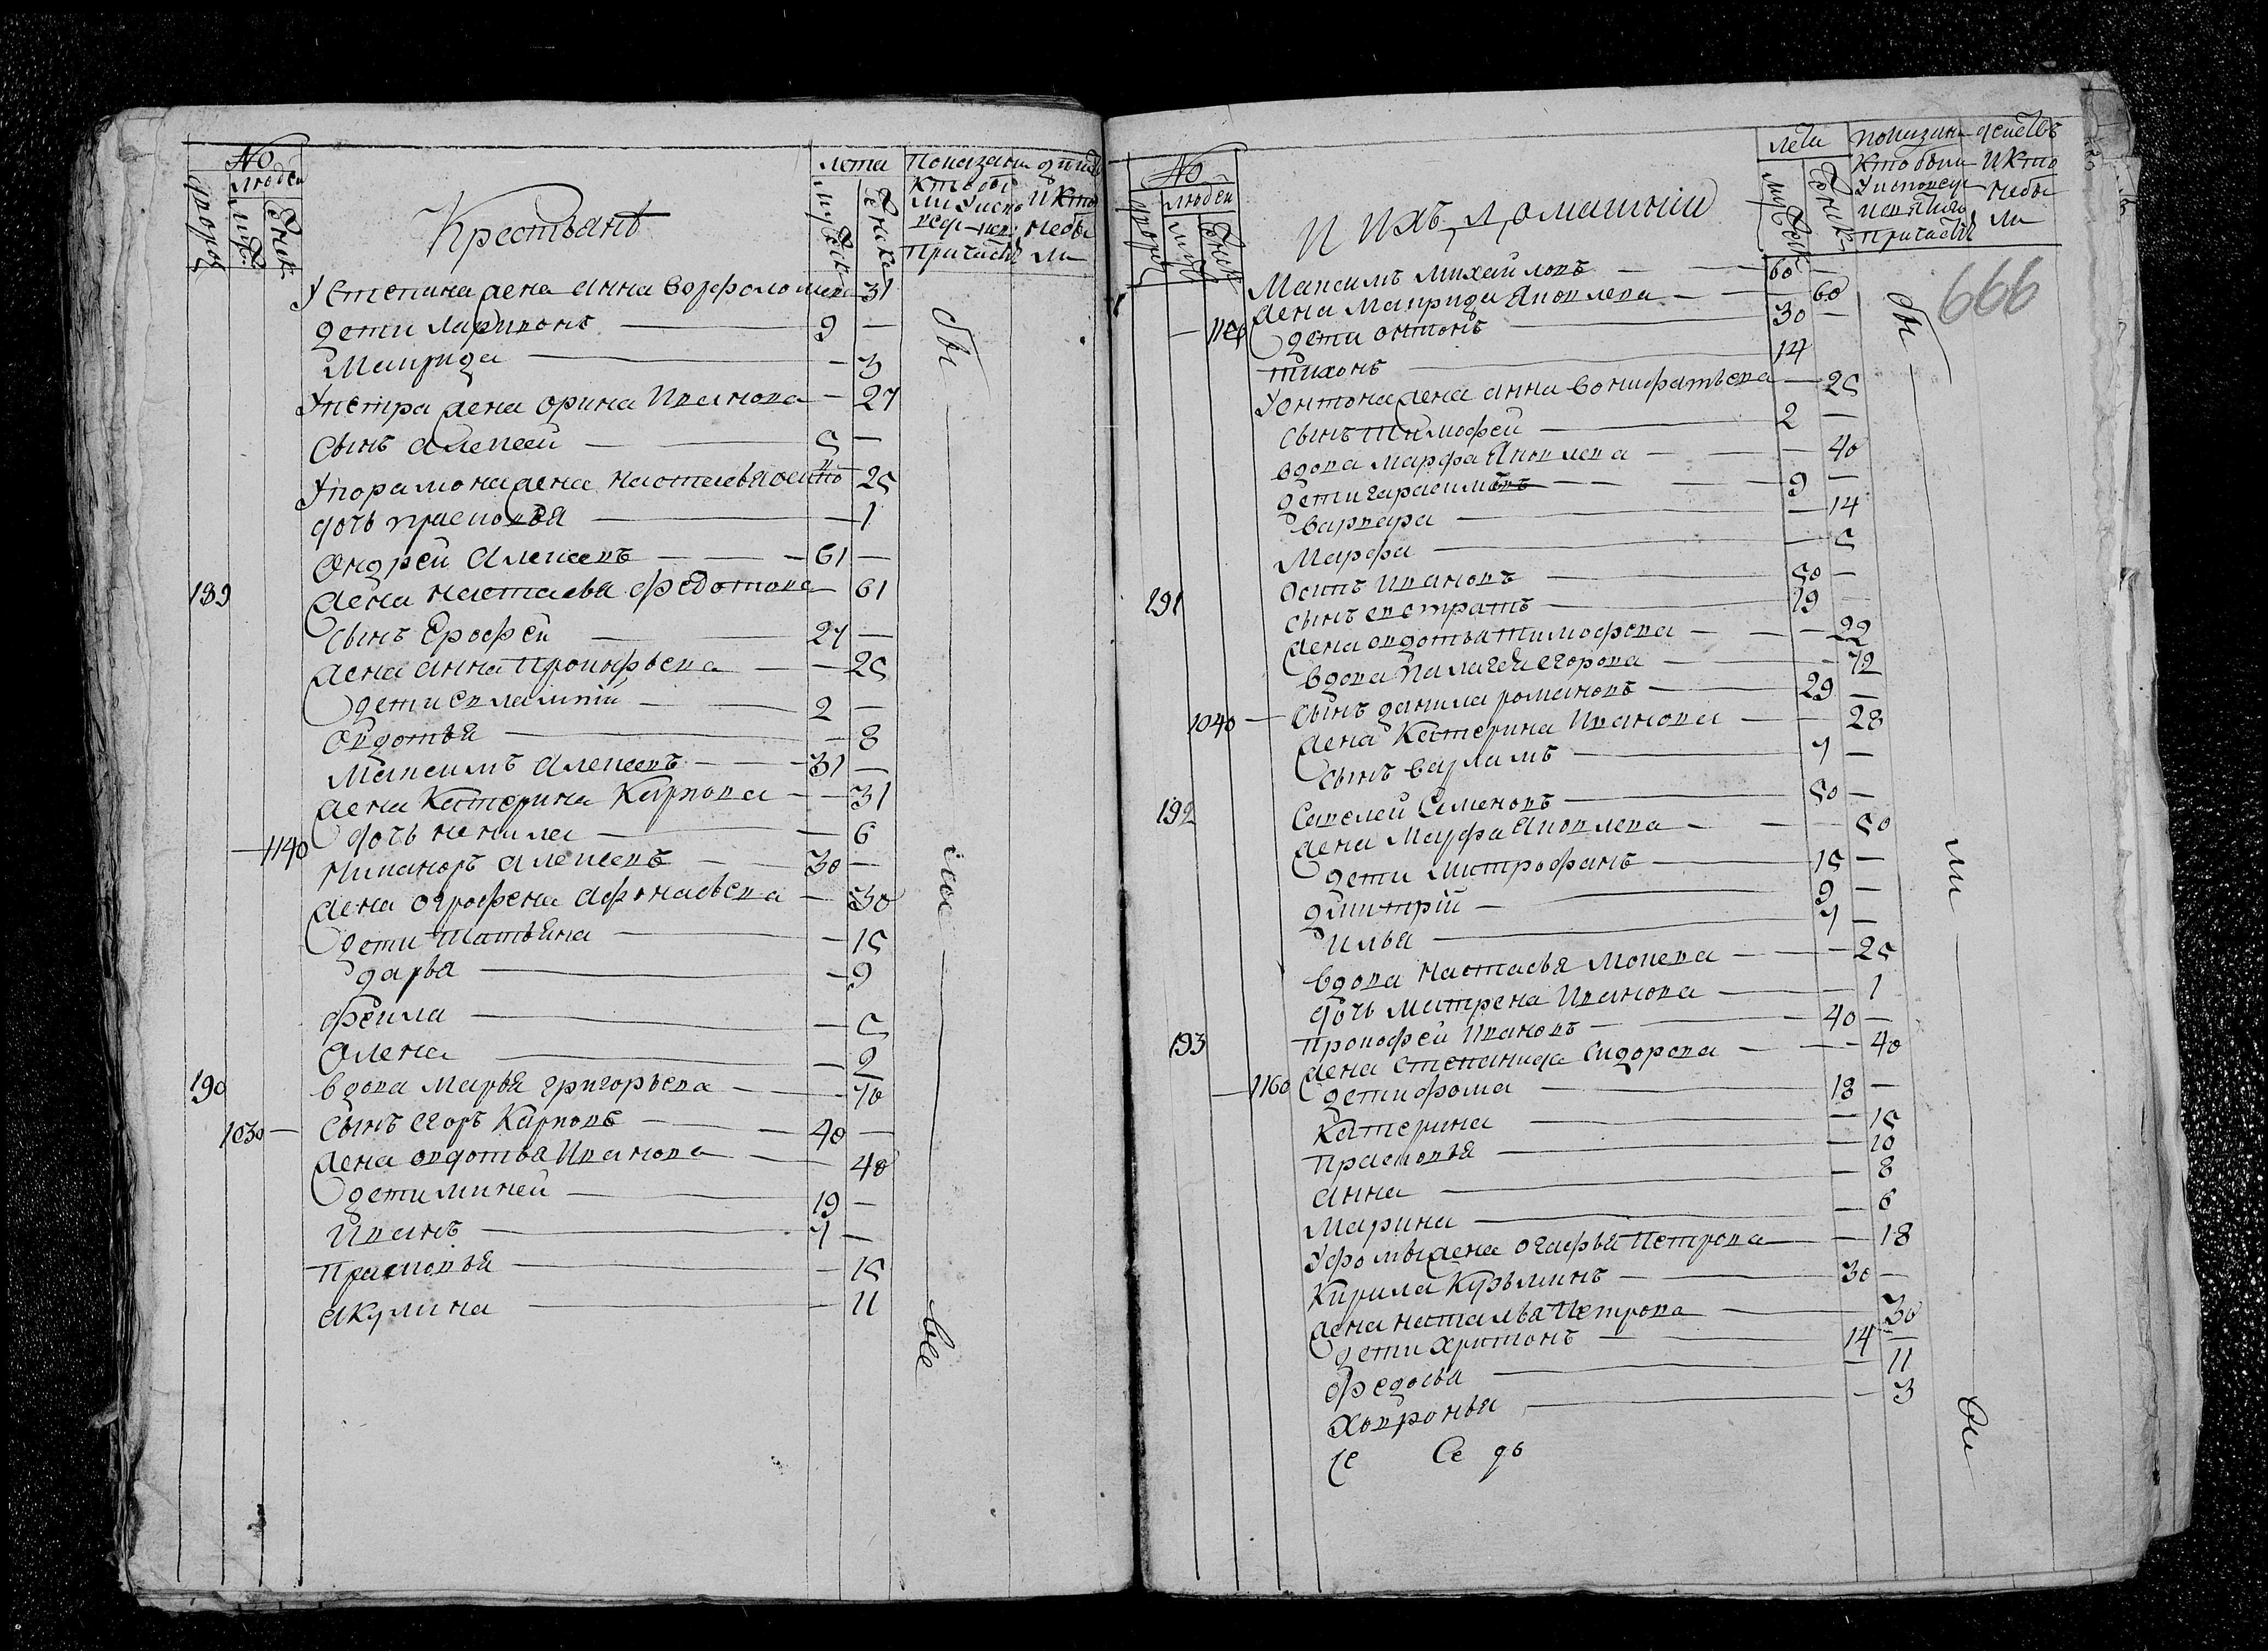 №
дворов
людей
муж:
женск
Крестьянѣ
лета
мужеск
женска
Показани действ
Кто бы
ли у испо
веди — исв:
Причасты
и кто
небы
ли
У степана жена анна ворфоломева 31
дети ларивонъ — 9 —
Мавруда — — 3
У петра жена орина Иванова — 27
сынъ алексей — 5 —
У порамона жена настасья осипо 25
дочь прасковья — — 1
андрей алексевъ — 61 —
189 жена настасья федотова — 61
сынъ Ерофей — 27 —
жена анна прокофьева — — 25
дети евлампiй — 2 —
овдотья — 8
Максимъ алексевъ — 31 —
жена Катерина Карпова — — 31
— 1140 дочь ненила — — 6
Никаноръ алексевъ — 30 —
жена огрофена афонасьева — 30
дети татьяна — — 15
дарья — — 9
фекла — — 5
алена — — 2
190 вдова марья григорьева — — 70
1030 — сынъ егоръ Карповъ — 40 —
жена овдотья Иванова — — 40
дети миней — 19 —
Иванъ — 7 —
прасковья — — 15
акулина — — 11
бы
все
№
дворов
людей
муж
женск
И ихъ домашнiи
лета
мужеск
женск
показани действъ
Кто были
у исповед
и св
причасты
и кто
небы
ли
666
Максимъ михайловъ — 60 —
жена Мавруда Яковлева — 60
— 1150 дети онтонъ — 30 —
тихонъ — 14
У онтона жена анна вонифатьева — 25
сынъ тимофей — 2 —
вдова марфа Яковлева — — 40
дети гарасимъ — 9 —
варвара — — 14
Марфа — — 5
191 осипъ Ивановъ — 50 —
сынъ евстратъ — 19 —
жена овдотья тимофева — — 22
вдова палагея егорова — — 72
1040 — сынъ данила романовъ — 29 —
жена Катерина Иванова — — 28
сынъ варламъ — 7 —
192 Савелей Семеновъ — 50 —
жена Марфа Яковлева — — 50
дети митрофанъ — 15 —
дмитрiй — 9 —
илья — 7 —
вдова настасья Мокева — — 25
дочь матрена Иванова — — 1
193 прокофей Ивановъ — 40 —
жена степанида Сидорова — — 40
— 1160 дети фома — 18 —
Катерина — — 15
прасковья — — 10
анна — — 8
марина — — 6
У фомы жена огафья петрова — — 18
Кирила Кузьминъ — 30 —
жена наталья петрова — 30
дети харитонъ — 14 —
федосья — — 11
ховронья — — 3
Се дв
бы
ли